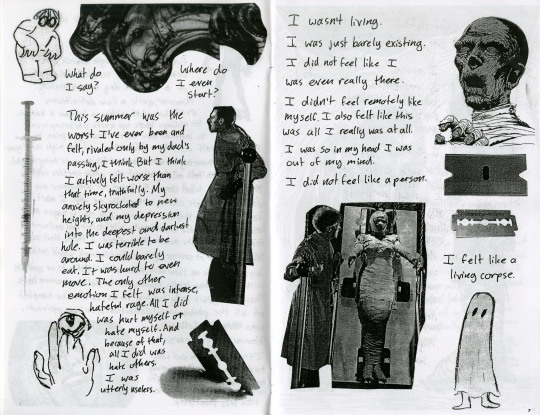 What do
I say?
Where do
I even
start?
This summer was the
worst I've ever been and
felt, rivaled only by my dad's
passing, I think. But I think
I actively felt worse than
that time, truthfully. My
anxiety skyrocketed to new
heights, and my depression
into the deepest and darkest
hole. I was terrible to be
around. I could barely
eat. It was hard to even
move. The only other
emotion I felt was intense,
hateful rage. All I did
was hurt myself or
hate myself. And
because of that,
all I did was
hate others.
I was
utterly useless.
I wasn't living.
I was just barely existing.
I did not feel like I
was even really there.
I didn't feel remotely like
myself. I also felt like this
was all I really was at all.
I was so in my head I was
out of my mind.
I did not feel like a person.
I felt like a
living corpse.